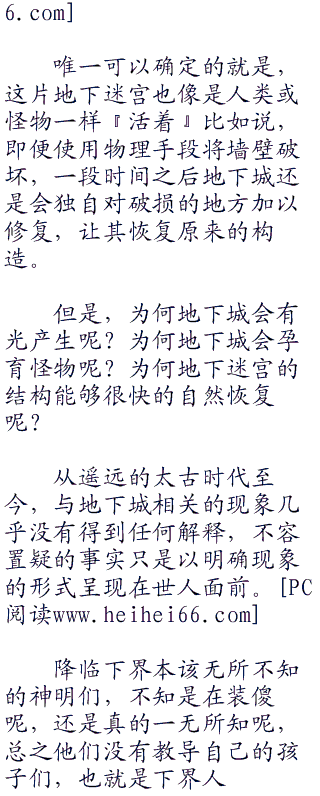 6.com]
唯一可以确定的就是，
这片地下迷宫也像是人类或
怪物一样『活着』比如说，
即便使用物理手段将墙壁破
坏，一段时间之后地下城还
是会独自对破损的地方加以
修复，让其恢复原来的构
造。
但是，为何地下城会有
光产生呢？为何地下城会孕
育怪物呢？为何地下迷宫的
结构能够很快的自然恢复
呢？
从遥远的太古时代至
今，与地下城相关的现象几
乎没有得到任何解释，不容
置疑的事实只是以明确现象
的形式呈现在世人面前。[PC
阅读www.heihei66.com]
降临下界本该无所不知
的神明们，不知是在装傻
呢，还是真的一无所知呢，
总之他们没有教导自己的孩
子们，也就是下界人